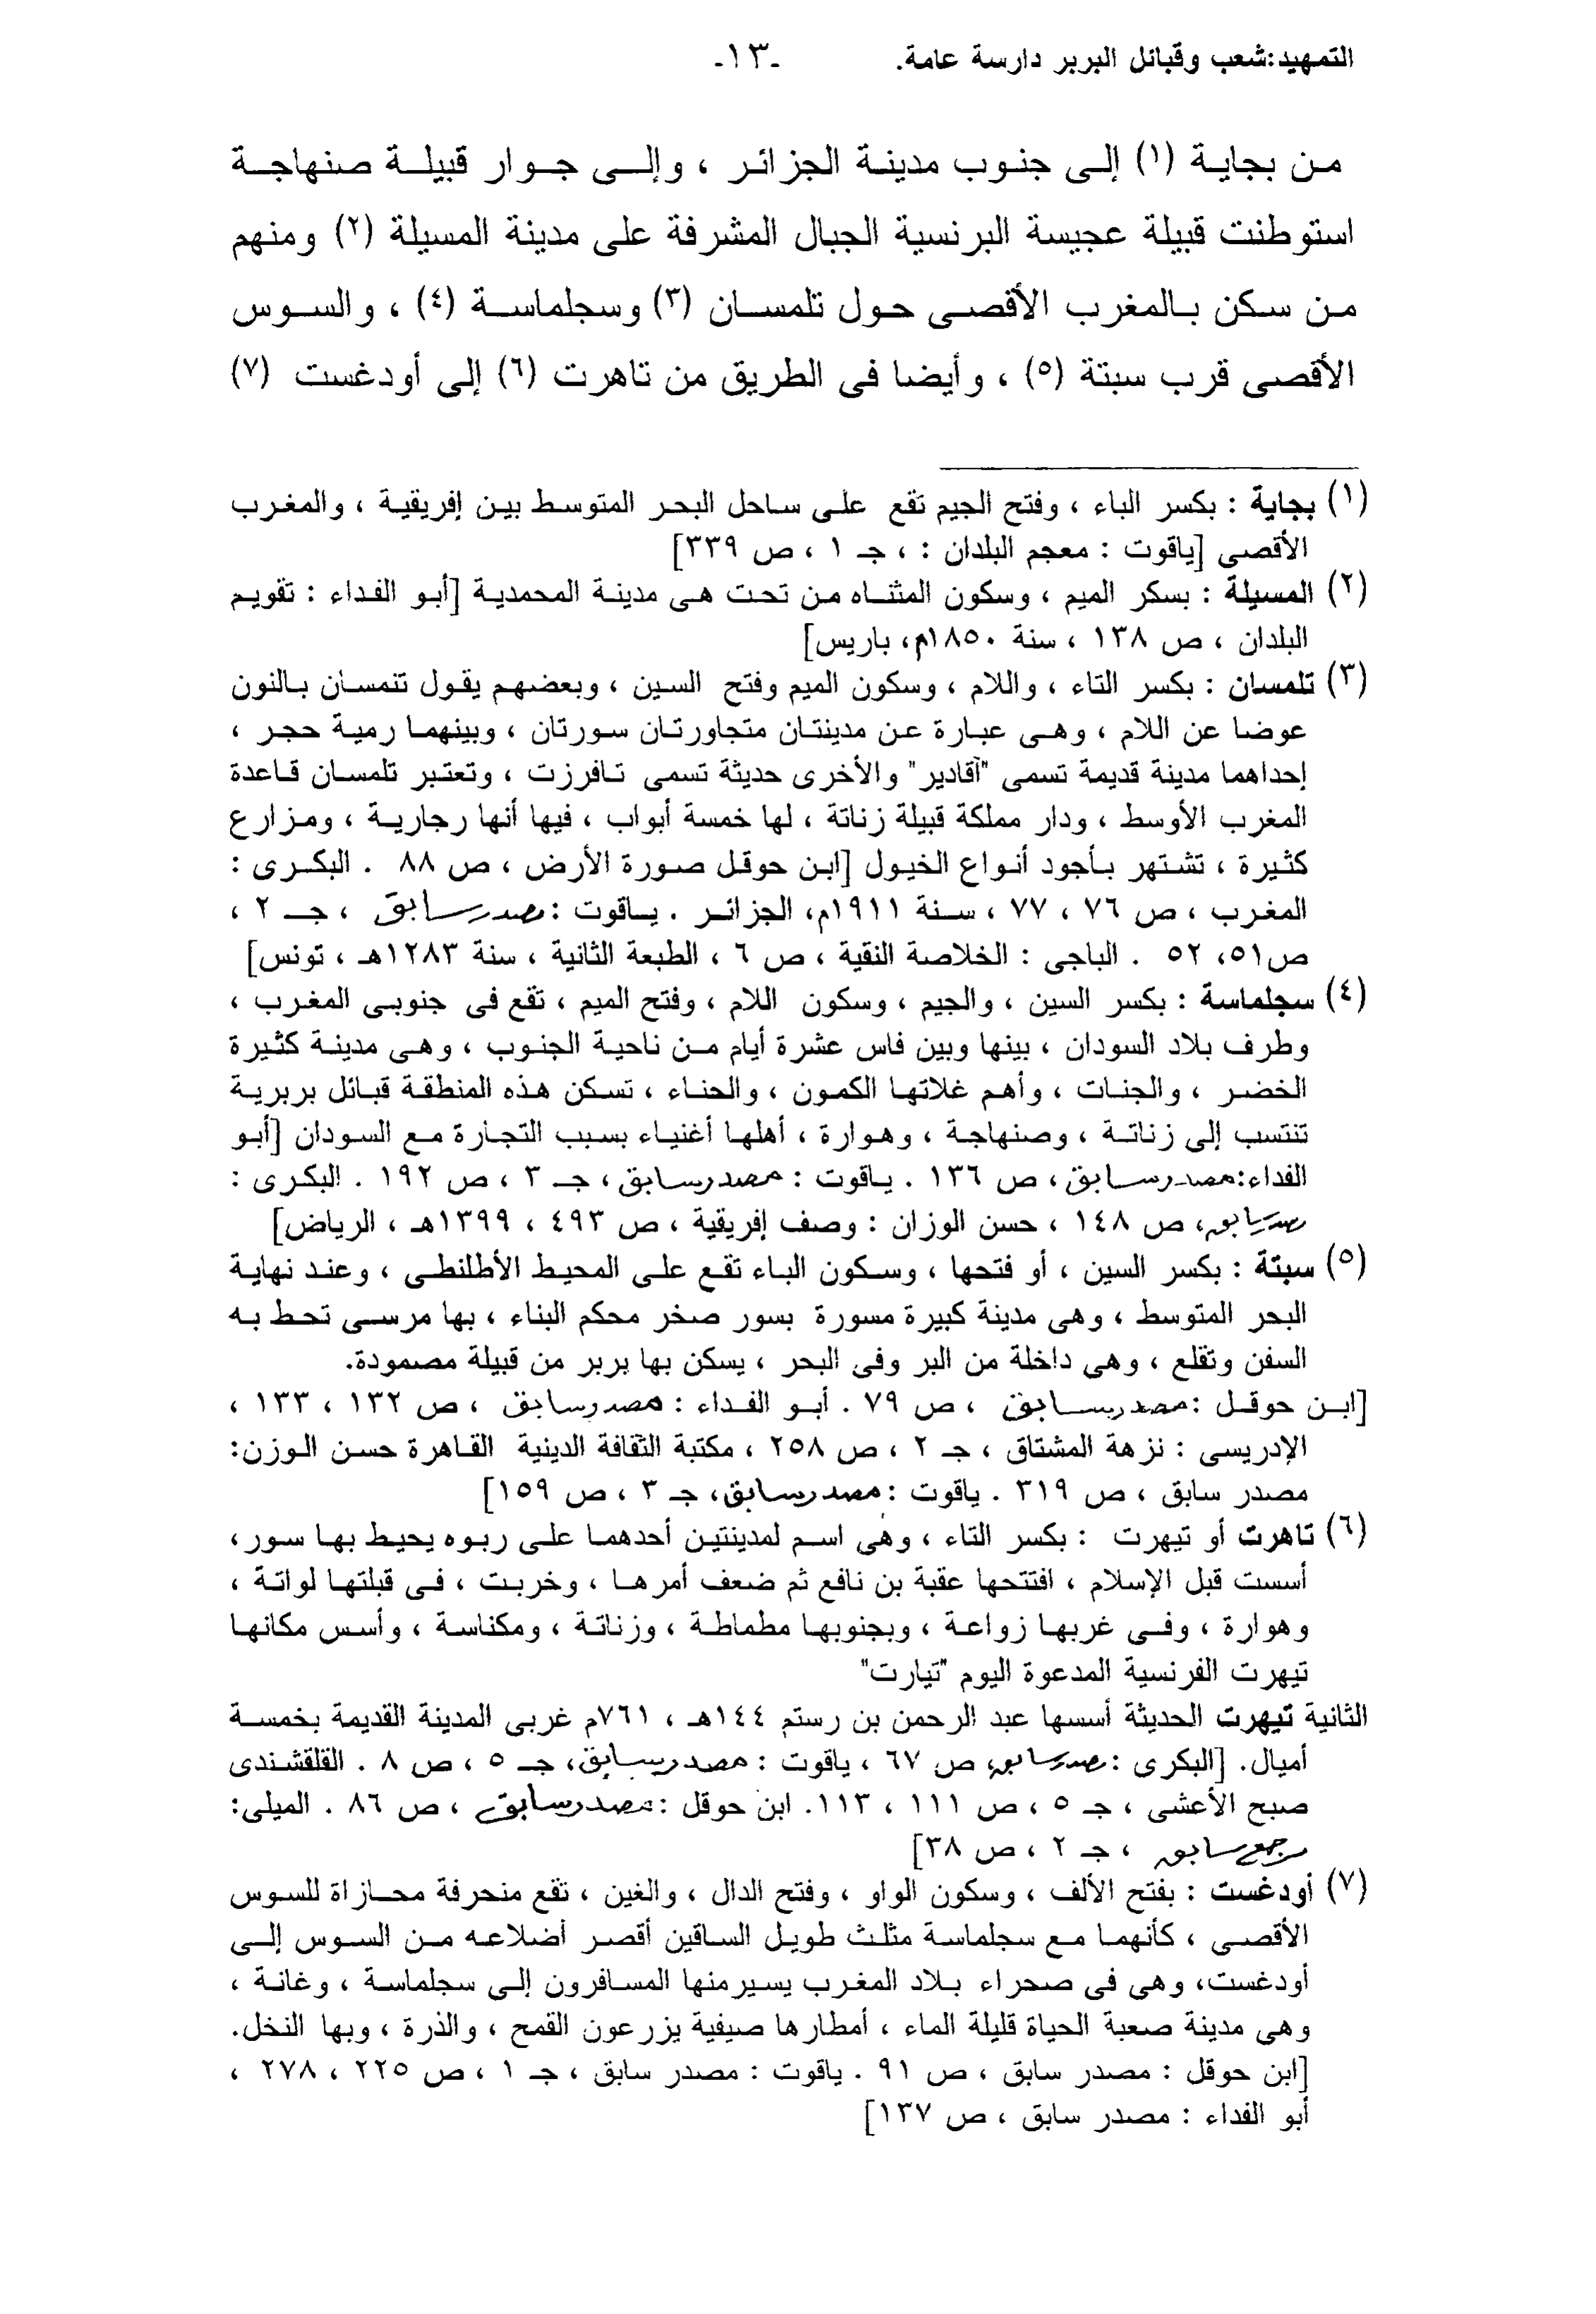 التمهيد:شعب وقبائل البربر دارسة عامة. -١٣-
من بجاية (١) إلى جنوب مدينة الجزائر ، وإلى جوار قبيلة صنهاجة
استوطنت قبيلة عجيسة البرنسية الجبال المشرفة على مدينة المسيلة (٢) ومنهم
من سكن بالمغرب الأقصى حول تلمسان (٣) وسجلماسة (٤) ، والسوس
الأقصى قرب سبتة (٥) ، وأيضا فى الطريق من تاهرت (٦) إلى أودغست (٧)
(١) بجاية : بكسر الباء ، وفتح الجيم تقع على ساحل البحر المتوسط بين إفريقية ، والمغرب
الأقصى [ياقوت : معجم البلدان : ، جـ ١ ، ص ٣٣٩]
(٢) المسيلة : بسكر الميم ، وسكون المثناه من تحت هى مدينة المحمدية [أبو الفداء : تقويم
البلدان ، ص ١٣٨ ، سنة ١٨٥٠م، باريس]
(٣) تلمسان : بكسر التاء ، واللام ، وسكون الميم وفتح السين ، وبعضهم يقول تنمسان بالنون
عوضا عن اللام ، وهى عبارة عن مدينتان متجاورتان سورتان ، وبينهما رمية حجر ،
إحداهما مدينة قديمة تسمى "آقادير" والأخرى حديثة تسمى تافرزت ، وتعتبر تلمسان قاعدة
المغرب الأوسط ، ودار مملكة قبيلة زناتة ، لها خمسة أبواب ، فيها أنها رجارية ، ومزارع
كثيرة ، تشتهر بأجود أنواع الخيول [ابن حوقل صورة الأرض ، ص ٨٨ . البكرى :
المغرب ، ص ٧٦ ، ٧٧ ، سنة ١٩١١م، الجزائر . ياقوت : مصدر سابق ، جـ ٢ ،
ص٥١، ٥٢ . الباجى : الخلاصة النقية ، ص ٦ ، الطبعة الثانية ، سنة ١٢٨٣هـ ، تونس]
(٤) سجلماسة : بكسر السين ، والجيم ، وسكون اللام ، وفتح الميم ، تقع فى جنوبى المغرب ،
وطرف بلاد السودان ، بينها وبين فاس عشرة أيام من ناحية الجنوب ، وهى مدينة كثيرة
الخضر ، والجنات ، وأهم غلاتها الكمون ، والحناء ، تسكن هذه المنطقة قبائل بربرية
تنتسب إلى زناتة ، وصنهاجة ، وهوارة ، أهلها أغنياء بسبب التجارة مع السودان [أبو
الفداء: مصدر سابق، ص ١٣٦ . ياقوت : مصدر سابق، جـ ٣ ، ص ١٩٢ . البكرى :
مصدر سابق، ص ١٤٨ ، حسن الوزان : وصف إفريقية ، ص ٤٩٣ ، ١٣٩٩هـ ، الرياض]
(٥) سبتة : بكسر السين ، أو فتحها ، وسكون الباء تقع على المحيط الأطلنطى ، وعند نهاية
البحر المتوسط ، وهى مدينة كبيرة مسورة بسور صخر محكم البناء ، بها مرسى تحط به
السفن وتقلع ، وهى داخلة من البر وفى البحر ، يسكن بها بربر من قبيلة مصمودة.
[ابن حوقل : مصدر سابق ، ص ٧٩ . أبو الفداء : مصدر سابق ، ص ١٣٢ ، ١٣٣ ،
الإدريسى : نزهة المشتاق ، جـ ٢ ، ص ٢٥٨ ، مكتبة الثقافة الدينية القاهرة حسن الوزن:
مصدر سابق ، ص ٣١٩ . ياقوت : مصدر سابق، جـ ٣ ، ص ١٥٩]
(٦) تاهرت أو تيهرت : بكسر التاء ، وهى اسم لمدينتين أحدهما على ربوه يحيط بها سور،
أسست قبل الإسلام ، افتتحها عقبة بن نافع ثم ضعف أمرها ، وخربت ، فى قبلتها لواتة ،
وهوارة ، وفى غربها زواعة ، وبجنوبها مطماطة ، وزناتة ، ومكناسة ، وأسس مكانها
تيهرت الفرنسية المدعوة اليوم "تيارت"
الثانية تيهرت الحديثة أسسها عبد الرحمن بن رستم ١٤٤هـ ، ٧٦١م غربى المدينة القديمة بخمسة
أميال. [البكرى : مصدر سابق، ص ٦٧ ، ياقوت : مصدر سابق، جـ ٥ ، ص ٨ . القلقشندى
صبح الأعشى ، جـ ٥ ، ص ١١١ ، ١١٣. ابن حوقل : مصدر سابق ، ص ٨٦ . الميلى:
مرجع سابق ، جـ ٢ ، ص ٣٨]
(٧) أودغست : بفتح الألف ، وسكون الواو ، وفتح الدال ، والغين ، تقع منحرفة محازاة للسوس
الأقصى ، كأنهما مع سجلماسة مثلث طويل الساقين أقصر أضلاعه من السوس إلى
أودغست، وهى فى صحراء بلاد المغرب يسيرمنها المسافرون إلى سجلماسة ، وغانة ،
وهى مدينة صعبة الحياة قليلة الماء ، أمطارها صيفية يزرعون القمح ، والذرة ، وبها النخل.
[ابن حوقل : مصدر سابق ، ص ٩١ . ياقوت : مصدر سابق ، جـ ١ ، ص ٢٢٥ ، ٢٧٨ ،
أبو الفداء : مصدر سابق ، ص ١٣٧]